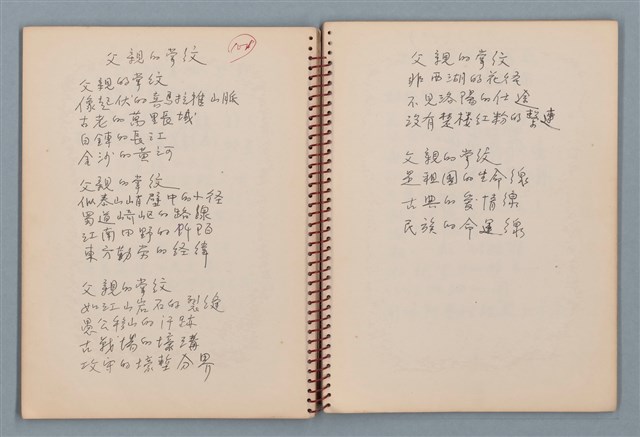 父親的掌紋
108
父親的掌紋
像起伏的喜馬拉雅山脈
古老的萬里長城
白鍊的長江
金沙的黃河
父親的掌紋
似泰山峭壁中的小徑
蜀道崎岖的路線
江南田野的阡陌
東方勤勞的經緯
父親的掌紋
如江山岩石的裂縫
愚公移山的汗跡
古戰場的壕溝
攻守的壕塹分界
父親的掌紋
非西湖的花徑
不見洛陽的仕途
沒有楚樓紅粉的
父親的掌紋
是祖國的生命線
古典的愛情線
民族的命運線